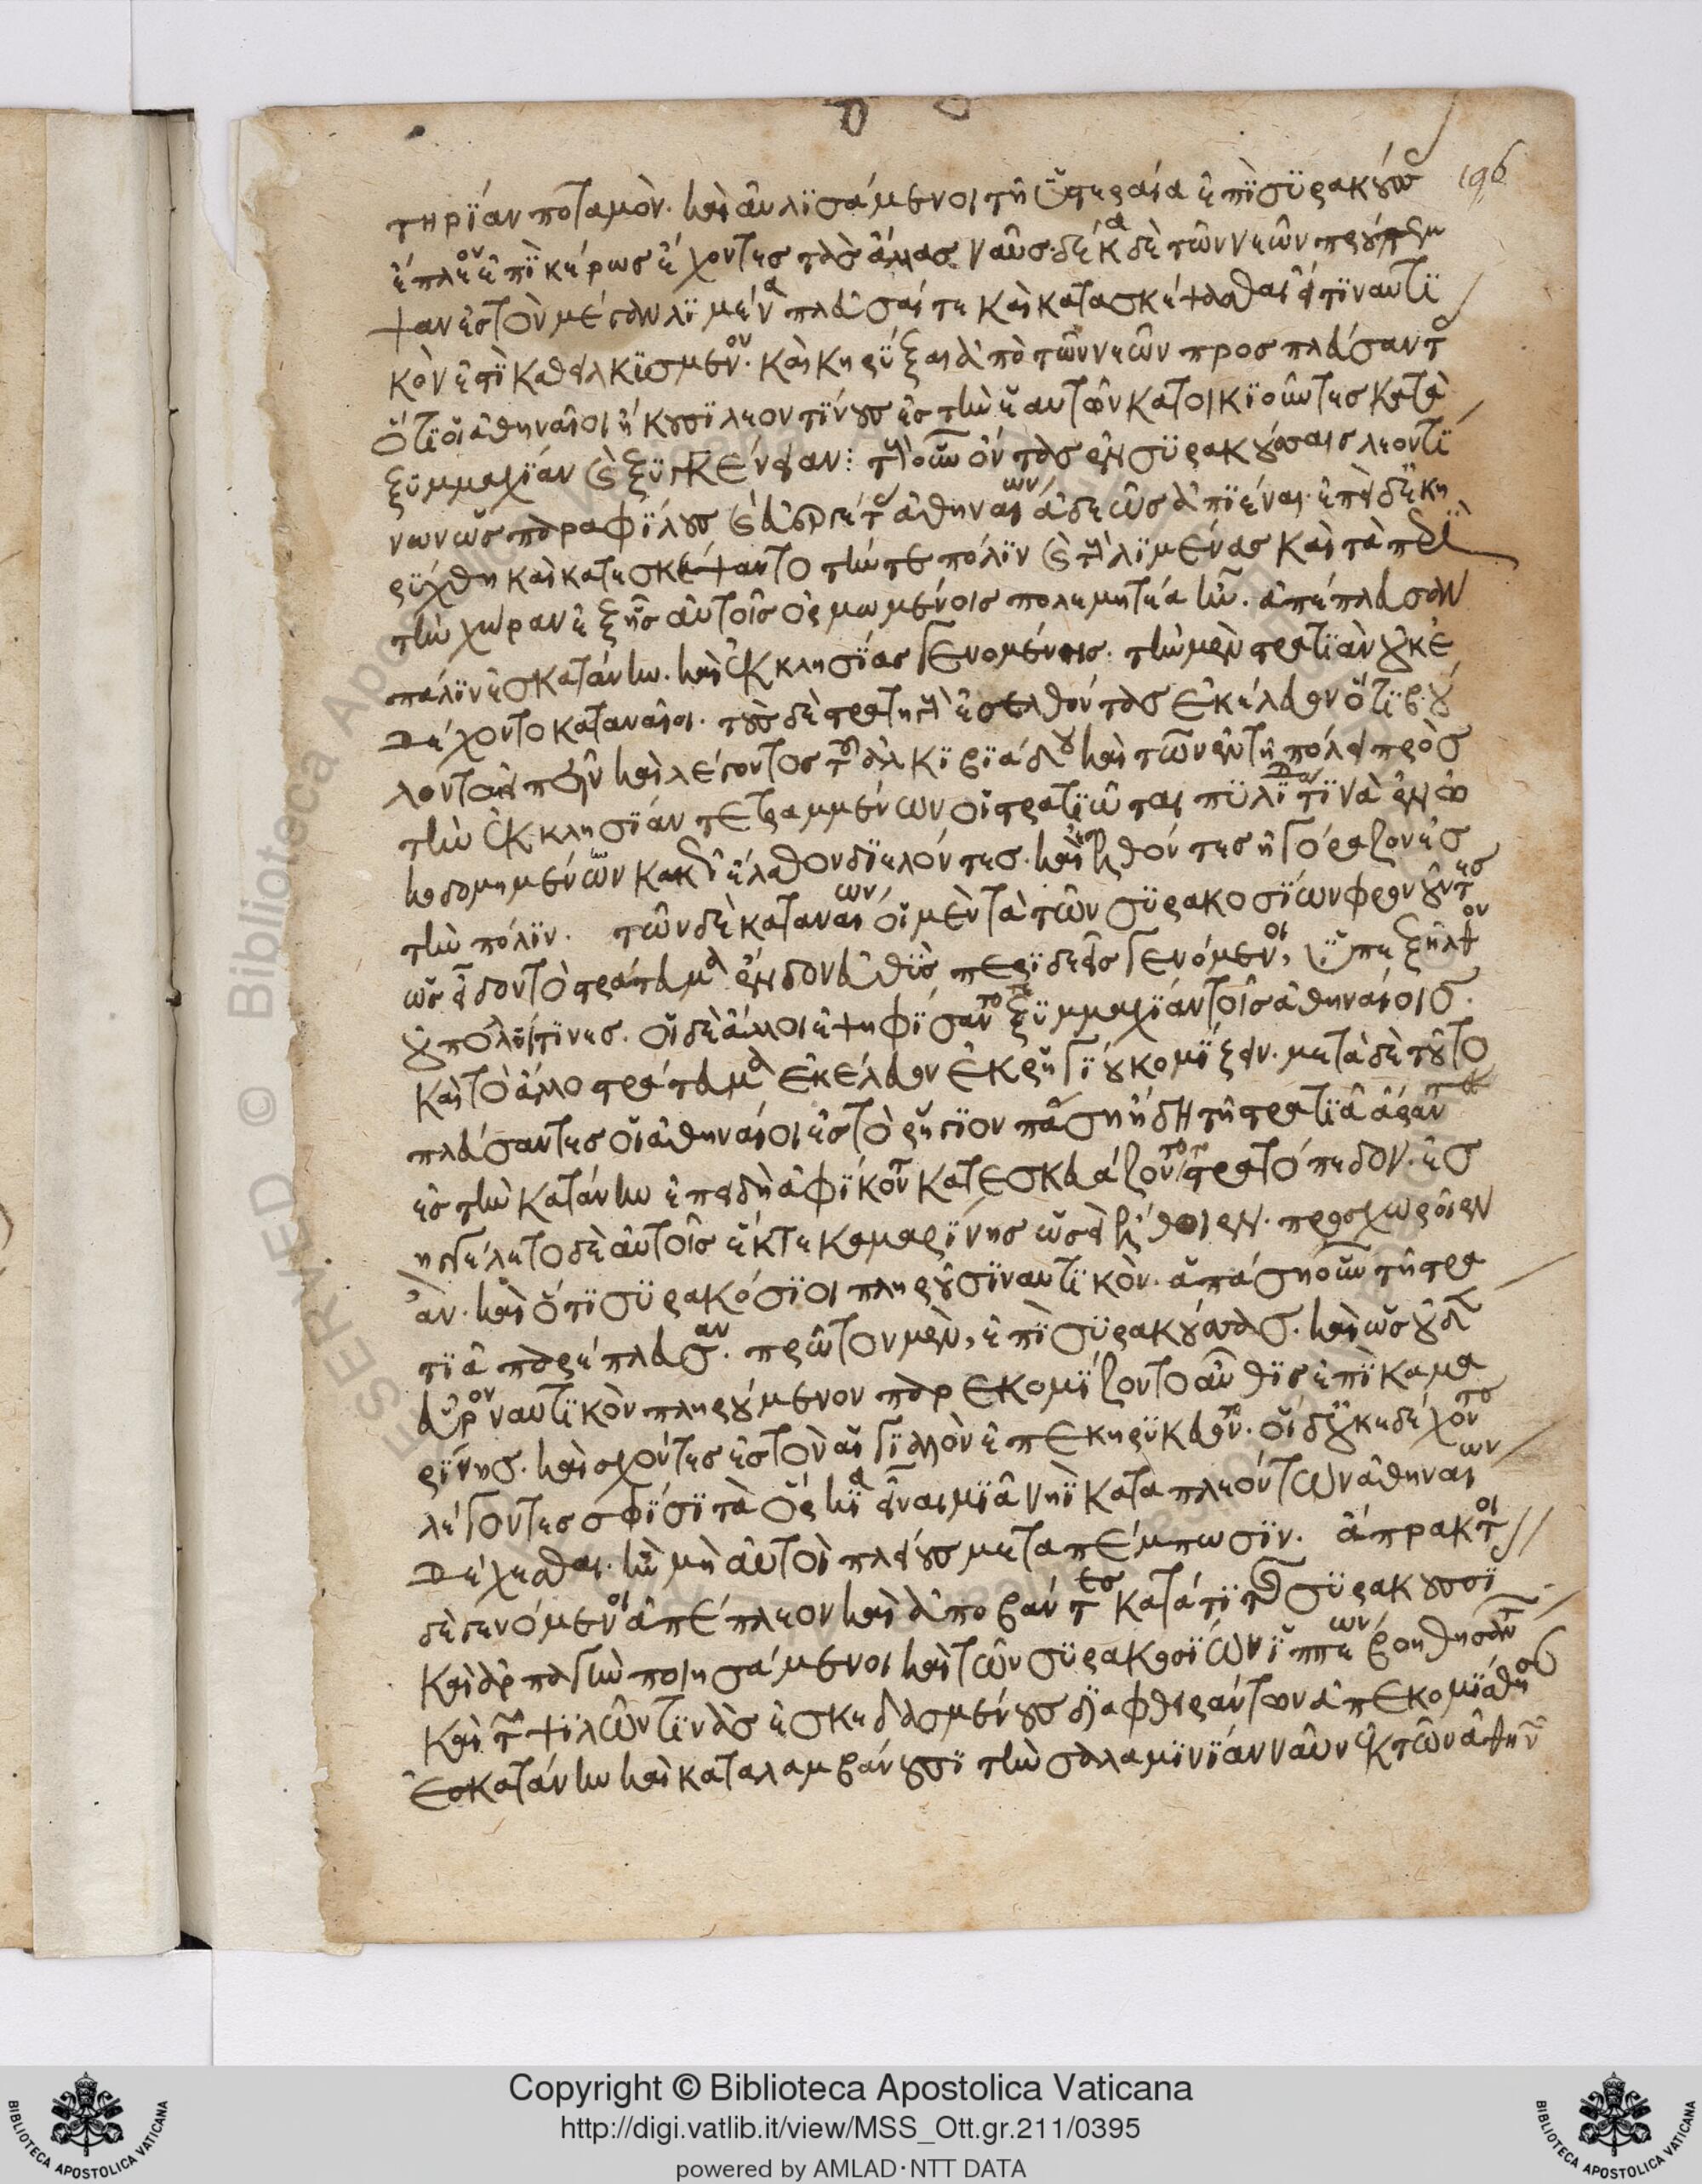 196
τηρίαν ποταμὸν. καὶ αὐλισάμενοι τῆ ὑστεραία ἐπὶ συρακούσ
ἔπλεον ἐπὶ κέρως ἔχοντες τὰς ἄλλας ναῦς. δέκα δὲ τῶν νεῶν προύπεμ
ψαν ἐς τὸν μέγαν λιμένα πλεῦσαί τε καὶ κατασκέψασθαι εἴ τι ναυτι
κὸν ἐστὶ καθειλκυσμένον. καὶ κηρύξαι ἀπὸ τῶν νεῶν προσπλεύσαντας
ὅτι οἱ ἀθηναῖοι ἥκουσι λεοντίνους ἐς τὴν ἑαυτῶν κατοικιοῦντες κατὰ
ξυμμαχίαν καὶ ξυγγένειαν: τοὺς οὖν ὄντας ἐν συρακούσαις λεοντί
νων ὡς παρὰ φίλους καὶ εὐεργέτας ἀθηναίων ἀδεῶς ἀπιέναι. ἐπεὶ δ' ἐκη
ρύχθη καὶ κατεσκέψαντο τήν τε πόλιν καὶ τοὺς λιμένας καὶ τὰ περὶ
τὴν χώραν ἐξ ἧς αὐτοῖς ὁρμωμένοις πολεμητέα ἦν. ἀπέπλευσαν
πάλιν ἐς κατάνην. καὶ ἐκκλησίας γενομένης. τὴν μὲν στρατιὰν οὐκ ἐ
δέχοντο καταναῖοι. τοὺς δὲ στρατηγοὺς ἐσελθόντας ἐκέλευον ὅτι βού
λονται εἰπεῖν καὶ λέγοντος τοῦ ἀλκιβιάδου καὶ τῶν ἐν τῆ πόλει πρὸς
τὴν ἐκκλησίαν τετραμμένων οἱ στρατιῶται πυλίδα τινὰ ἐνῳ
κοδομημένην κακῶς ἔλαθον διελόντες. καὶ ἐσελθόντες ἠγόραζον ἐς
τὴν πόλιν. τῶν δὲ καταναίων οἱ μὲν τὰ τῶν συρακοσίων φρονοῦντες
ὡς εἶδον τὸ στράτευμα ἔνδον εὐθὺς περιδεεῖς γενόμενοι, ὑπεξῆλθον
οὐ πολλοί τινες. οἱ δὲ ἄλλοι ἐψηφίσαντό τε ξυμμαχίαν τοῖς ἀθηναίοις.
καὶ τὸ ἄλλο στράτευμα ἐκέλευον ἐκ ῥηγίου κομίζειν. μετὰ δὲ τοῦτο
πλεύσαντες οἱ ἀθηναῖοι ἐς τὸ ῥήγιον πάση ἤδη τῆ στρατιᾶ ἄραντες
ἐς τὴν κατάνην ἐπειδὴ ἀφίκοντο κατεσκευάζοντο τὸ στρατόπεδον. ἐσ
ηγγέλετο δὲ αὐτοῖς ἔκ τε καμαρίνης ὡς εἰ ἔλθοιεν. προσχωροῖεν
ἂν. καὶ ὅτι συρακόσιοι πληροῦσι ναυτικὸν. ἁπάση οὖν τῆ στρα
τιᾶ παρέπλευσαν. πρῶτον μὲν, ἐπὶ συρακούσας. καὶ ὡς οὐδὲν
εὗρον ναυτικὸν πληρούμενον παρεκομίζοντο αὖθις ἐπὶ καμα
ρίνης. καὶ σχόντες ἐς τὸν αἰγιαλὸν ἐπεκηρυκεύοντο. οἱ δ' οὐκ ἐδέχοντο
λέγοντες σφίσι τὰ ὅρκια εἶναι μιᾶ νηὶ καταπλεόντων ἀθηναίων
δέχεσθαι. ἢν μὴ αὐτοὶ πλείους μεταπέμπωσιν. ἄπρακτοι
δὲ γενόμενοι ἀπέπλεον καὶ ἀποβάντες κατά τι τῆς συρακουσί
καὶ ἁρπαγὴν ποιησάμενοι καὶ τῶν συρακοσίων ἱππέων βοηθησάντων
καὶ τῶν ψιλῶν τινὰς ἐσκεδασμένους διαφθειράντων ἀπεκομίσθησαν
ἐς κατάνην καὶ καταλαμβάνουσι τὴν σαλαμινίαν ναῦν ἐκ τῶν ἀθηνῶν
Copyright © Biblioteca Apostolica Vaticana
http://digi.vatlib.it/view/MSS_Ott.gr.211/0395
powered by AMLAD·NTT DATA
BIBLIOTECA APOSTOLICA VATICANA
BIBLIOTECA APOSTOLICA VATICANA